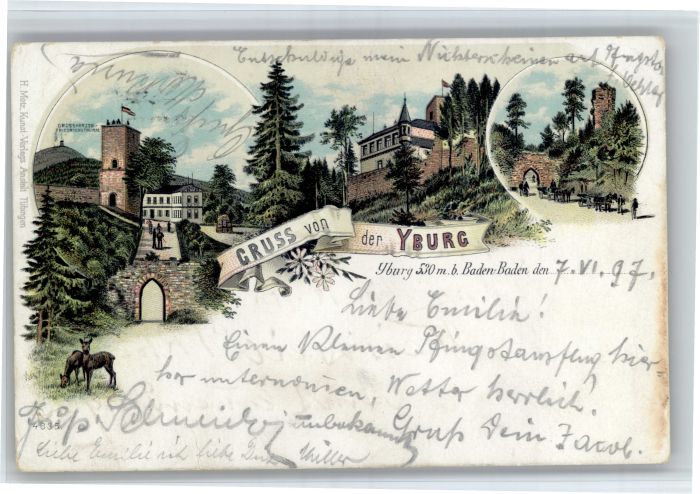 Entschuldige mein Nichterscheinen
GROSSHERZOG
FRIEDRICHSTHURM
H. Metz, Kunst-Verlags-Anstalt Tübingen
GRUSS von der YBURG
Yburg 530 m. b. Baden-Baden den 7. VI. 97.
Liebe Emilie!
Einen kleinen Pfingstausflug hier-
her unternommen, Wetter herrlich.
Gruß Dein Jacob.
unbekannt
4835
liebe Emilie ich liebe Dich